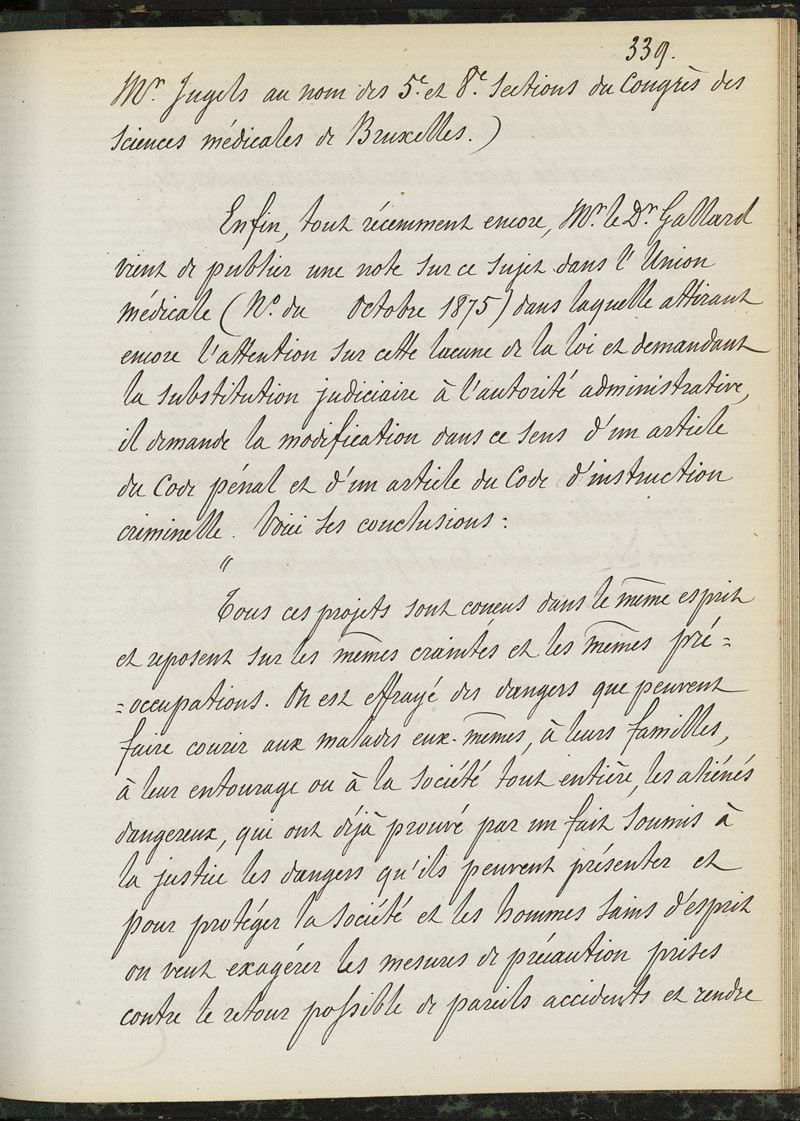 339.
Mr. Ingels au nom des 5e. et 8e. Sections du Congrès des
Sciences médicales de Bruxelles.)
Enfin, tout récemment encore, Mr. le Dr. Gallard
vient de publier une note sur ce sujet dans l'Union
médicale (No. du Octobre 1875) dans laquelle attirant
encore l'attention sur cette lacune de la loi et demandant
la substitution judiciaire à l'autorité administrative,
il demande la modification dans ce sens d'un article
du Code pénal et d'un article du Code d'instruction
criminelle. Voici ses conclusions :
"
Tous ces projets sont conçus dans le même esprit
et reposent sur les mêmes craintes et les mêmes pré=
=occupations. On est effrayé des dangers que peuvent
faire courir aux malades eux-mêmes, à leurs familles,
à leur entourage ou à la société tout entière, les aliénés
dangereux, qui ont déjà prouvé par un fait soumis à
la justice les dangers qu'ils peuvent présenter et
pour protéger la société et les hommes sains d'esprit
on veut exagérer les mesures de précaution prises
contre le retour possible de pareils accidents et rendre